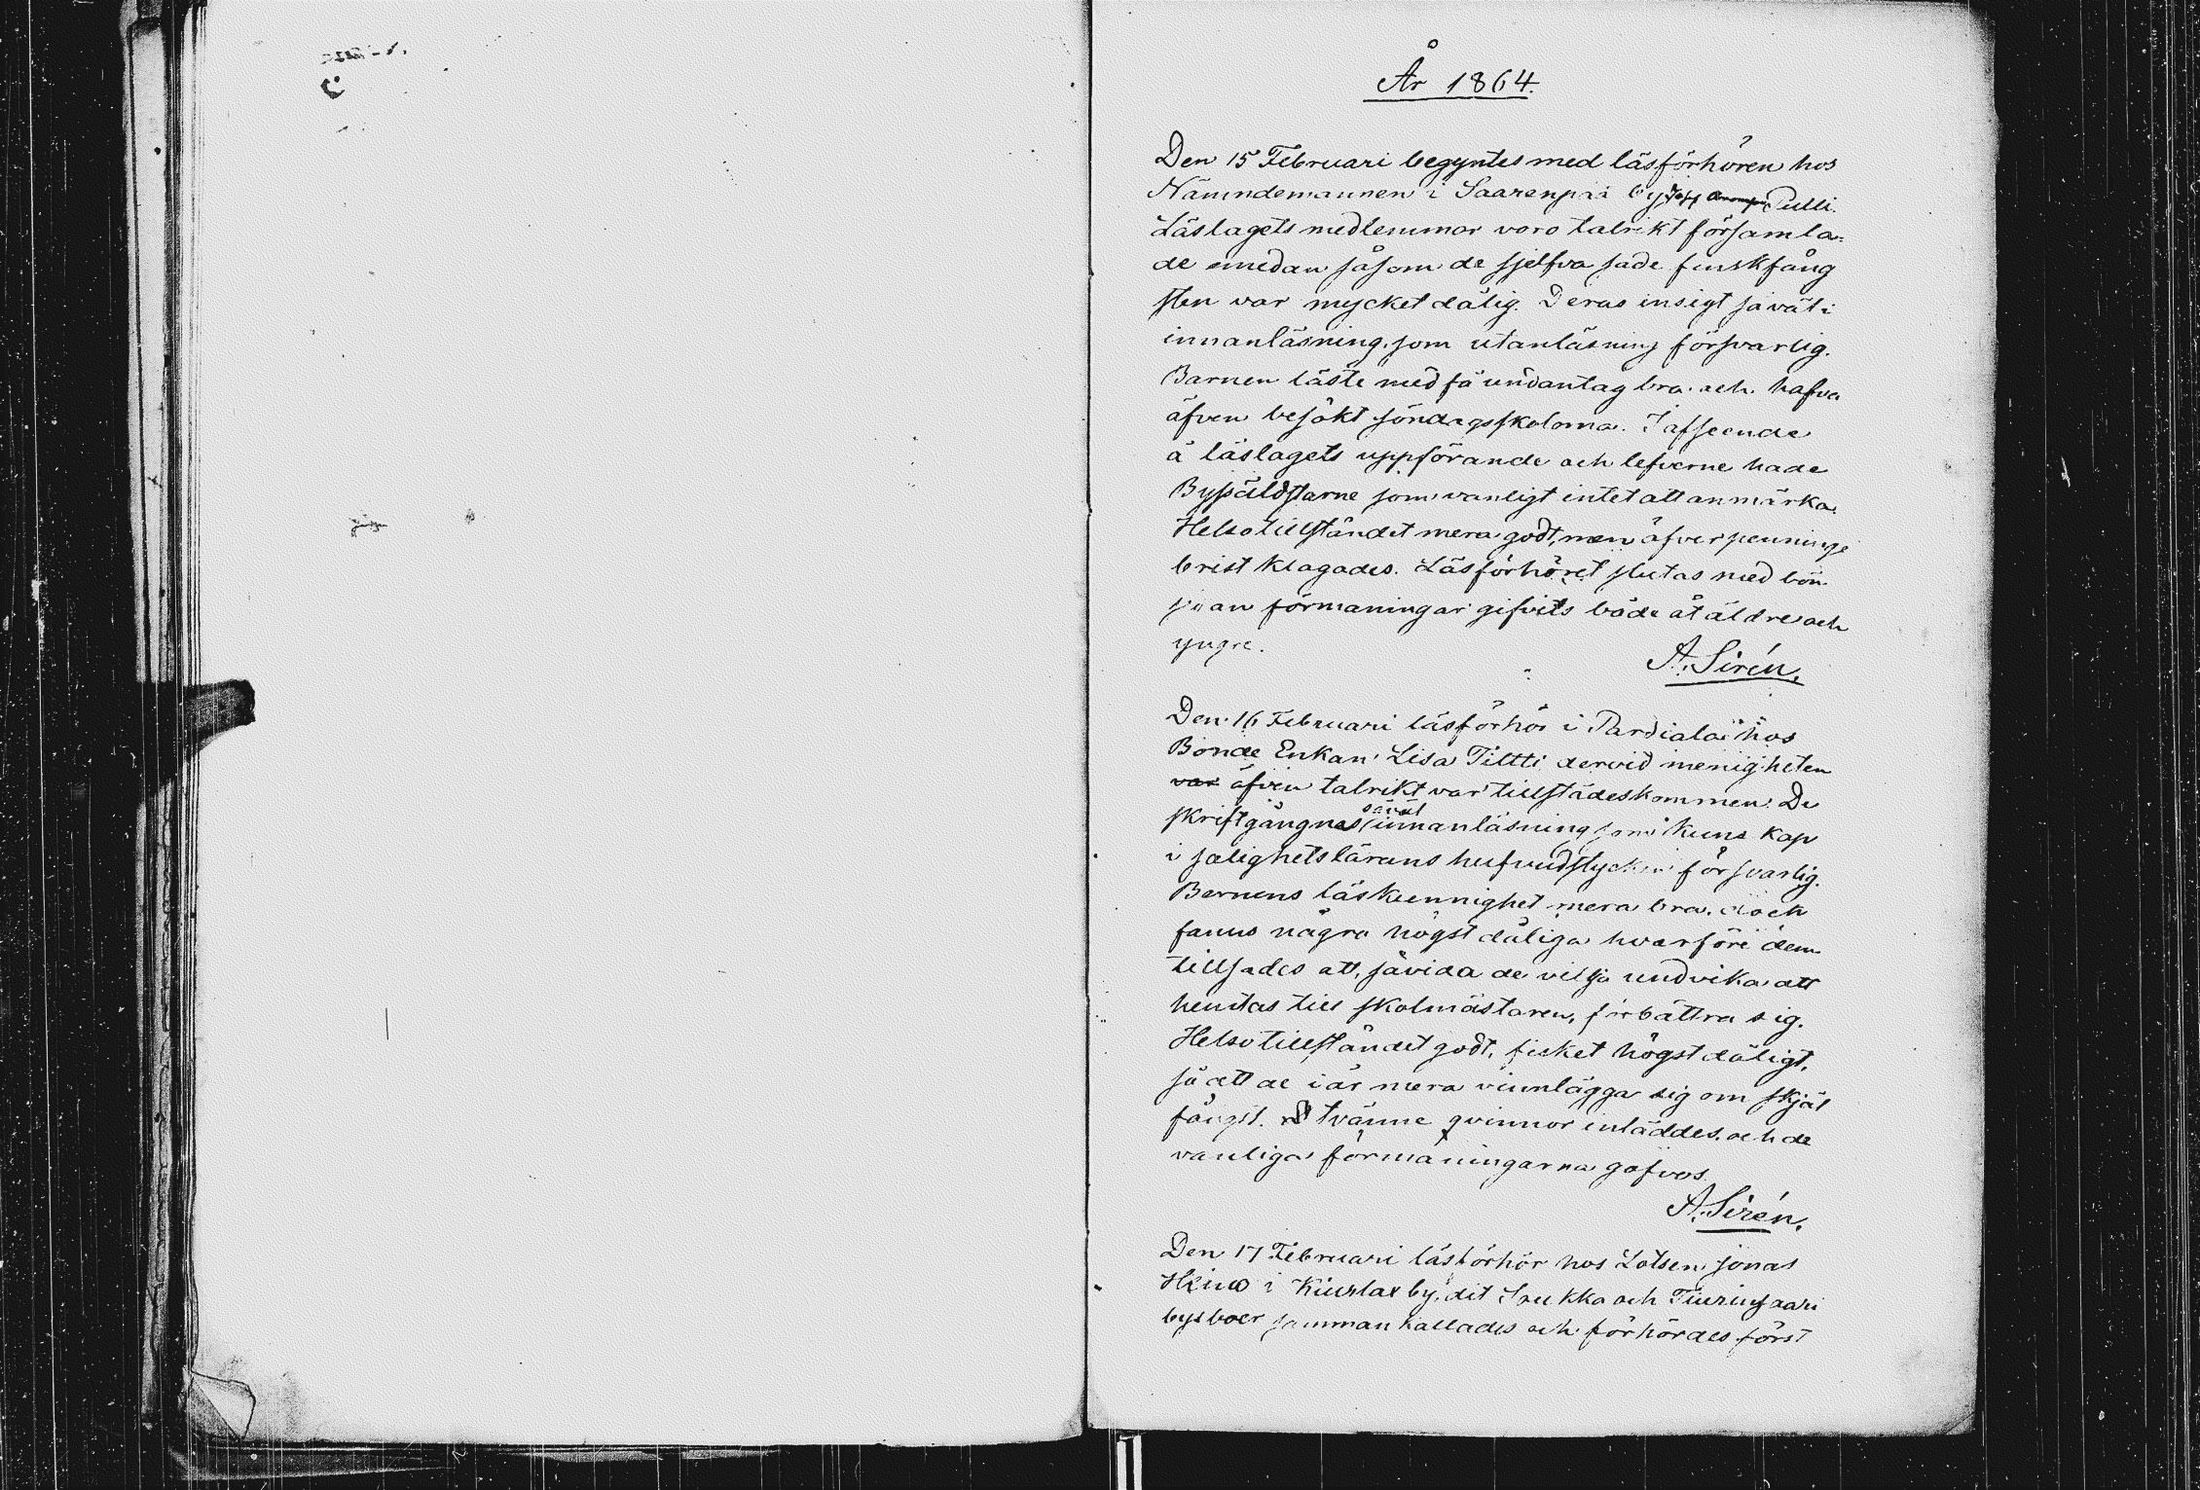 År 1864.
Den 15 Februari begyntes med läsförhören hos
Nämndemannen i Saarenpää by Pulli.
Läslagets medlemmar voro talrikt församla=
de emedan såsom de sjelfva sade fiskfång
sten var mycket dålig. Deras insigt såväl i
innanläsning, som utanläsning försvarlig.
Barnen läste med få undantag bra och hafva
äfven besökt söndagsskolorna. I afseende
å läslagets uppförande och lefverne hade
Byäldstarne som vanligt intet att anmärka.
Helsotillståndet mera godt, men öfver penninge
brist klagades. Läsförhöret slutas med bön
sedan förmaningar gifvits både åt äldre och
yngre.
A. Sirén.
Den 16 Februari läsförhör i Pardiala hos
Bonde Enkan Lisa Tiltti dervid menigheten
var äfven talrikt var tillstädeskommen. De
skriftgångnas såväl innanläsning som kuns kap
i salighetslärans hufvudstycken försvarlig.
Barnens läskunnighet mera bra, dock
fanns några högst dåliga hvarföre dem
tillsades att, såvida de vilja undvika att
hemtas till skolmästaren, förbättra sig.
Helsotillståndet godt, fisket högst dåligt,
så att de i år mera vinnlägga sig om skjäl
fångst. Tvänne qvinnor inläddes, och de
vanliga förmaningarna gåfvos.
A. Sirén.
Den 17 Februari läsförhör hos Lotsen Jonas
Heino i Kiurlax by, dit Inukka och Tiurinsaari
bysboer sammankallades och förhördes först